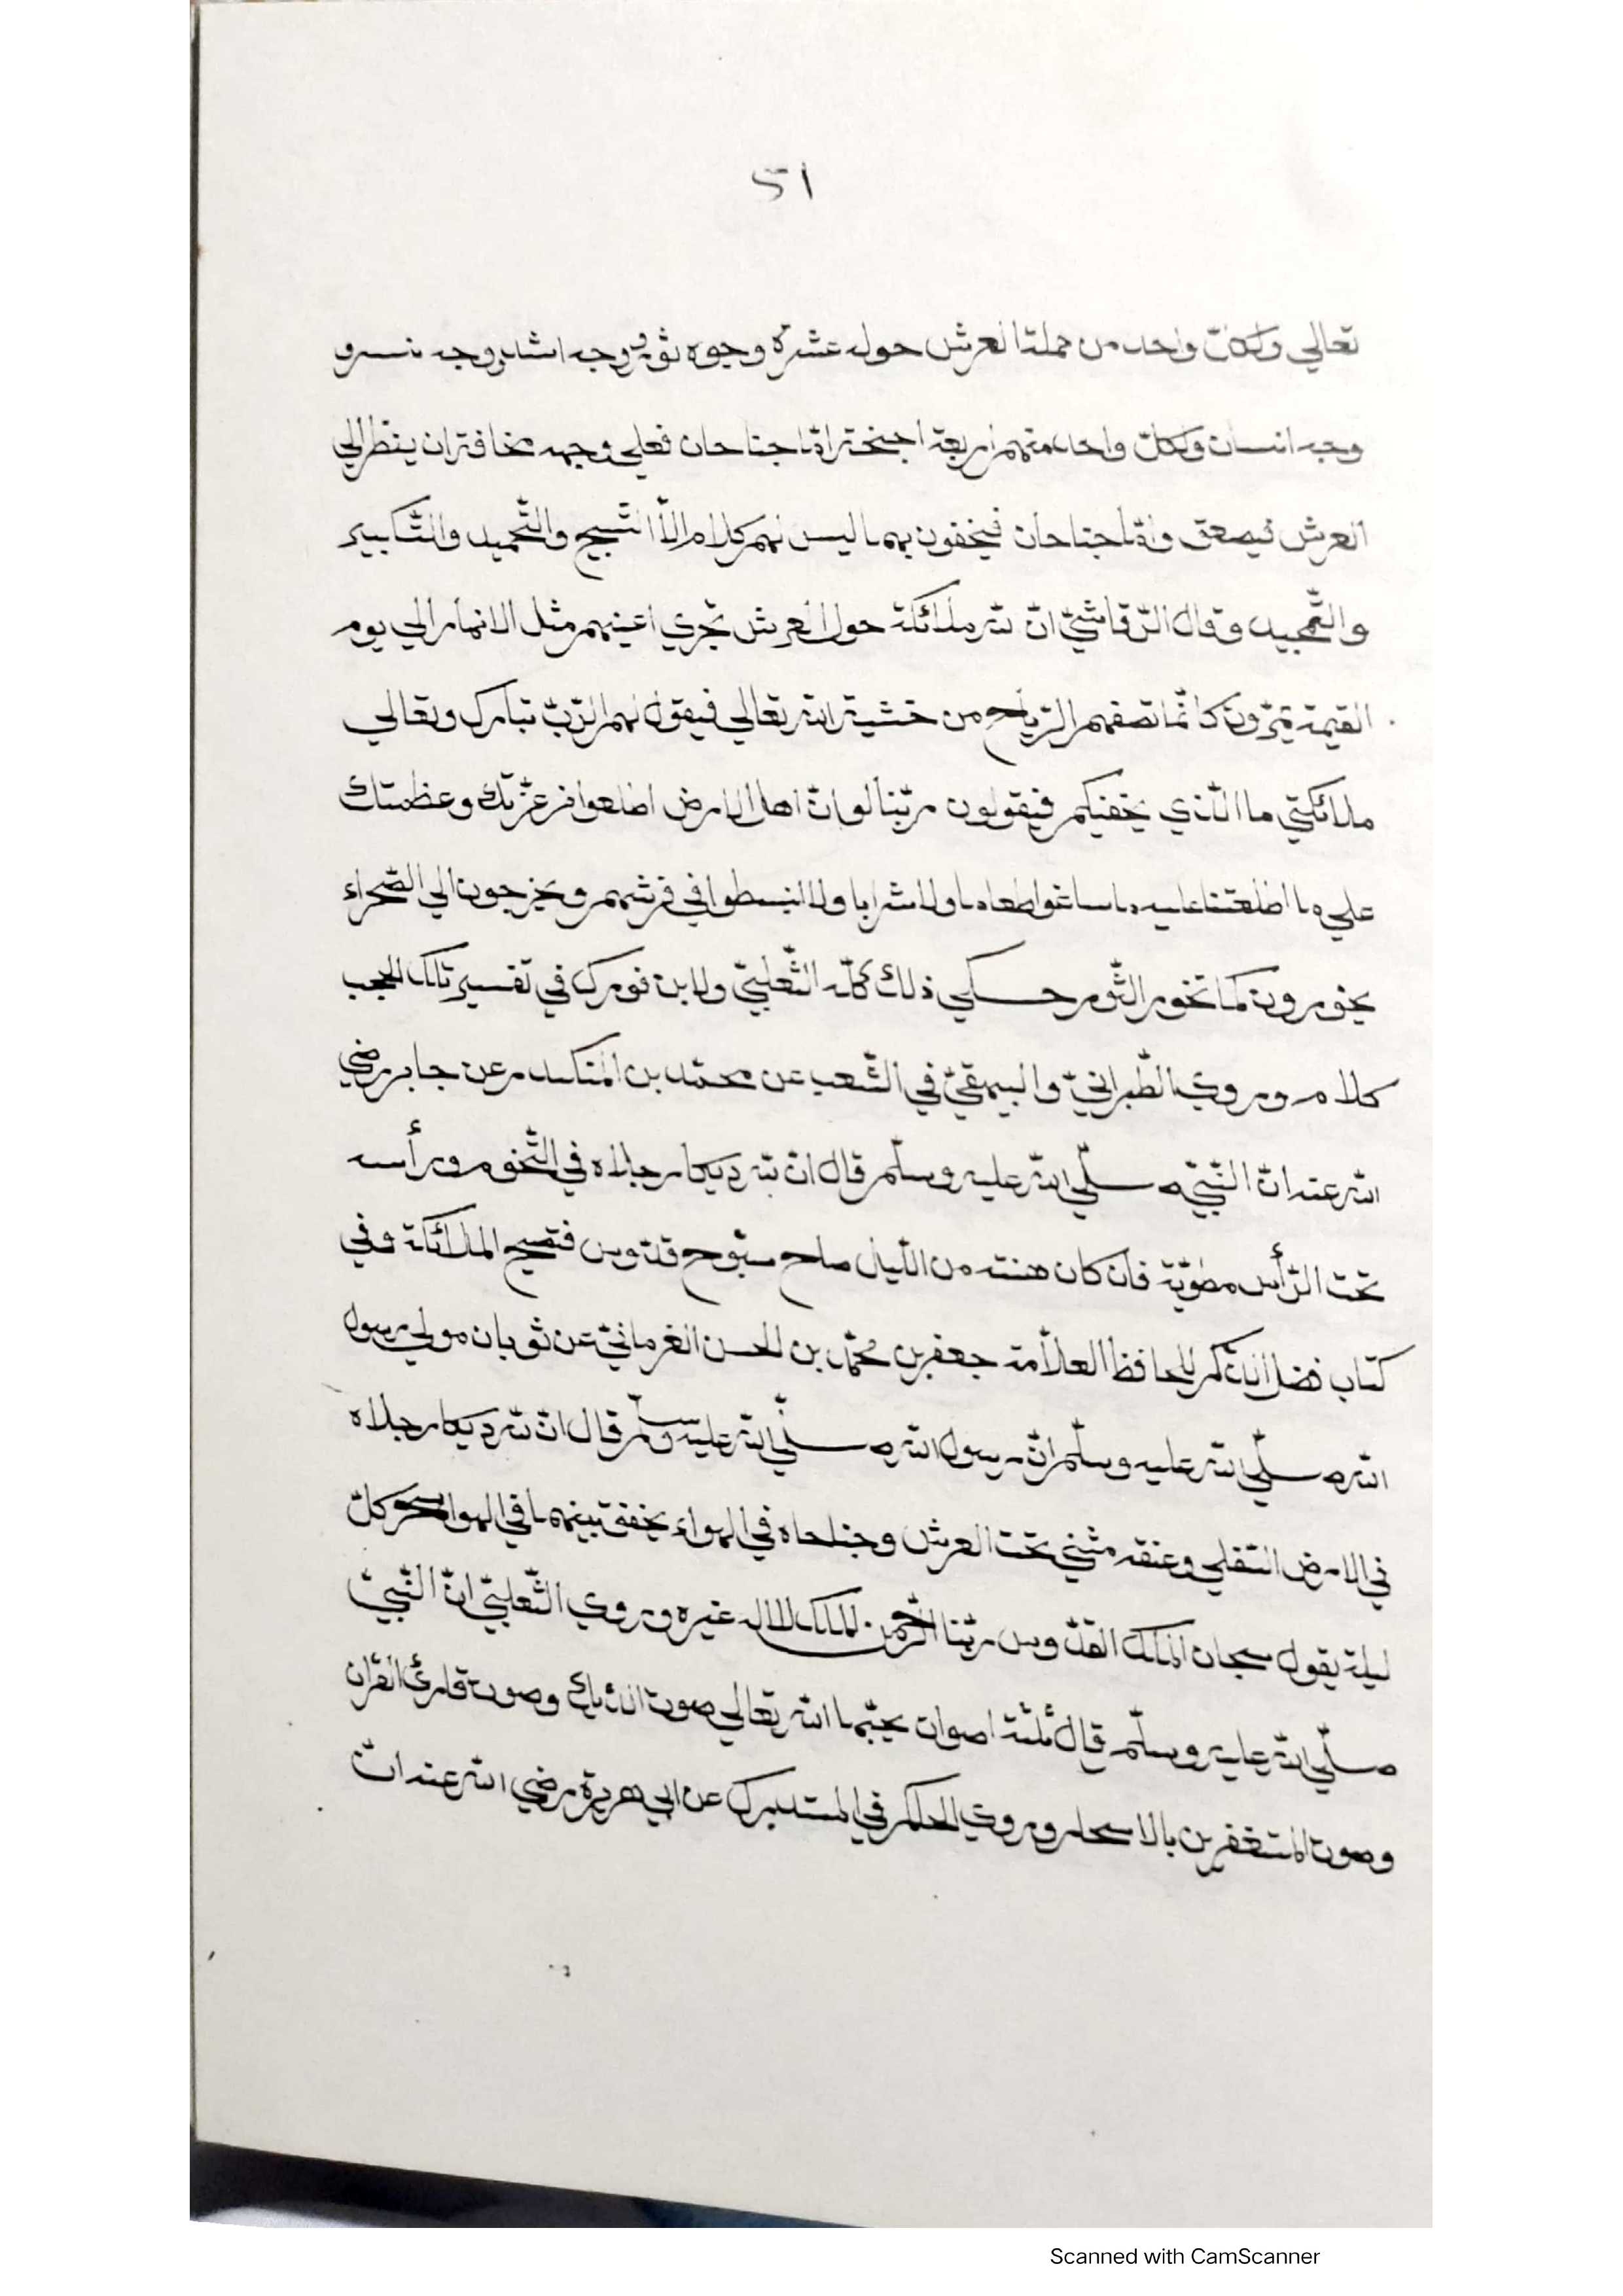 ٥١
تعالي ولكلّ واحد من حملة العرش حوله عشرة وجوه ثور ووجه اسد ووجه نسر و
وجه انسان ولكلّ واحد منهم اربعة اجنحة امّا جناحان فعلي وجهه مخافة ان ينظر الي
العرش فيصعق وامّا جناحان فيخفون بهما ليس لهم كلام الّا التّسبيح والتّحميد والتّكبير
والتّمجيد وقال الرّقاشيّ انّ لله ملائكة حول العرش تجري اعينهم مثل الانهار الي يوم
القيمة يميدون كانّما تصفهم الرّياح من خشية الله تعالي فيقول لهم الرّبّ تبارك وتعالي
ملائكتي ما الّذي يخفيكم فيقولون ربّنا لو انّ اهل الارض اطلعوا من عزّتك وعظمتك
علي ما اطلعتنا عليه ما ساغوا طعاما ولا شرابا ولا انبسطوا في فرشهم ويخرجون الي الصّحراء
يخورون كما تخور الثّور حكي ذلك كلّه الثّعلبيّ ولابن فورك في تفسير تلك الحجب
كلام وروي الطّبرانيّ والبيهقيّ في الشّعب عن محمّد بن المنكدر عن جابر رضي
الله عنه انّ النّبيّ صلّي الله عليه وسلّم قال انّ لله ديكا رجلاه في التّخوم ورأسه
تحت الرّأس مطويّة فان كان هنته من اللّيل صاح سبّوح قدّوس فتصيح الملائكة وفي
كتاب فضل الذّكر للحافظ العلّامة جعفر بن محمّد بن الحسن الغرمانيّ عن ثوبان مولي رسول
الله صلّي الله عليه وسلّم انّ رسول الله صلّي الله عليه وسلّم قال انّ لله ديكا رجلاه
في الارض السّفلي وعنقه مثني تحت العرش وجناحاه في الهواء يخفق بينهما في الهوا سحر كلّ
ليلة يقول سبحان الملك القدّوس ربّنا الرّحمن الملك لا اله غيره وروي الثّعلبيّ انّ النّبيّ
صلّي الله عليه وسلّم قال ثلثة اصوات يحبّها الله تعالي صوت الدّيك وصوت قارئ القرآن
وصوت المستغفرين بالاسحار وروي الحاكم في المستدرك عن ابي هريرة رضي الله عنه انّ
Scanned with CamScanner